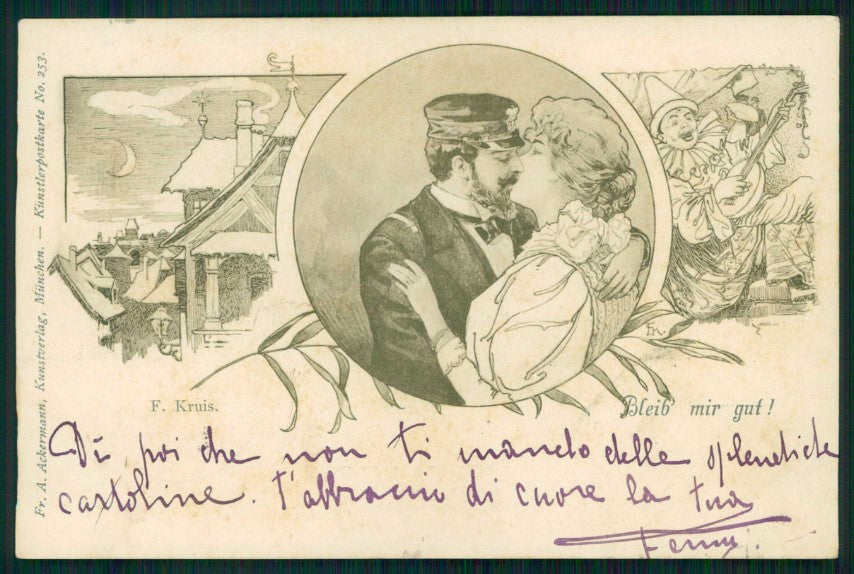 Fr. A. Ackermann, Kunstverlag, München. — Künstlerpostkarte No. 253.
F. Kruis.
Bleib' mir gut!
FK
Di poi che non ti mando delle splendide
cartoline. t'abbraccio di cuore la tua